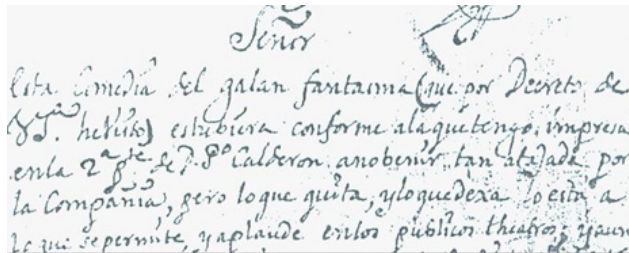 Señor
Esta Comedia del galan fantasma (que por Decreto de
he visto) estubiera conforme alaquetengo, impresa
enla 2ª pte. de D. Pº Calderon, anobenir, tan atajada por
la Compañia, pero loque quita, yloquedexa lo esta a
lo que sepermite, yaplaude enlos publicos theatros; yaun